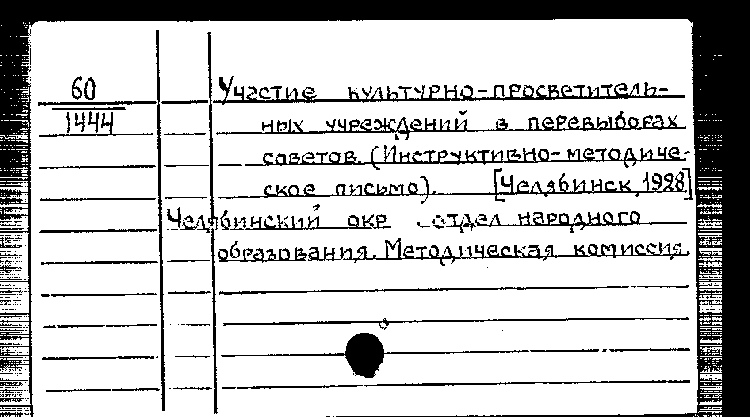 60
1444
Участие культурно-просветитель-
ных учреждений в перевыборах
советов. (Инструктивно-методиче-
ское письмо). [Челябинск, 1928]
Челябинский окр. отдел народного
образования. Методическая комиссия.